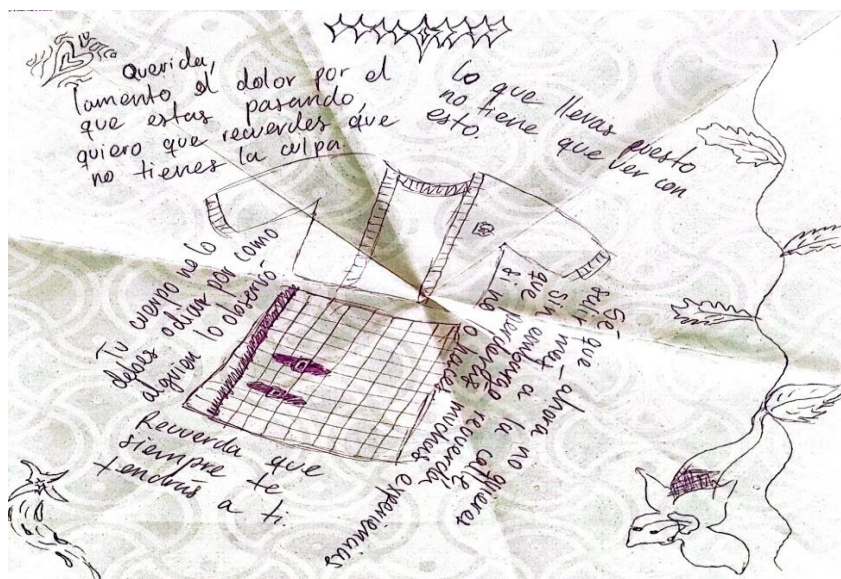 Querida,
lamento el dolor por el
que estas pasando,
quiero que recuerdes que
no tienes la culpa.
lo que llevas puesto
no tiene que ver con
esto.
Tu cuerpo no lo
debes odiar por como
alguien lo observó
Sé que ahora no quieres
salir mas a la calle
Sin embargo recuerda
que muchas experiencias
si no lo haces
Recuerda que
siempre te
tendrás a ti.